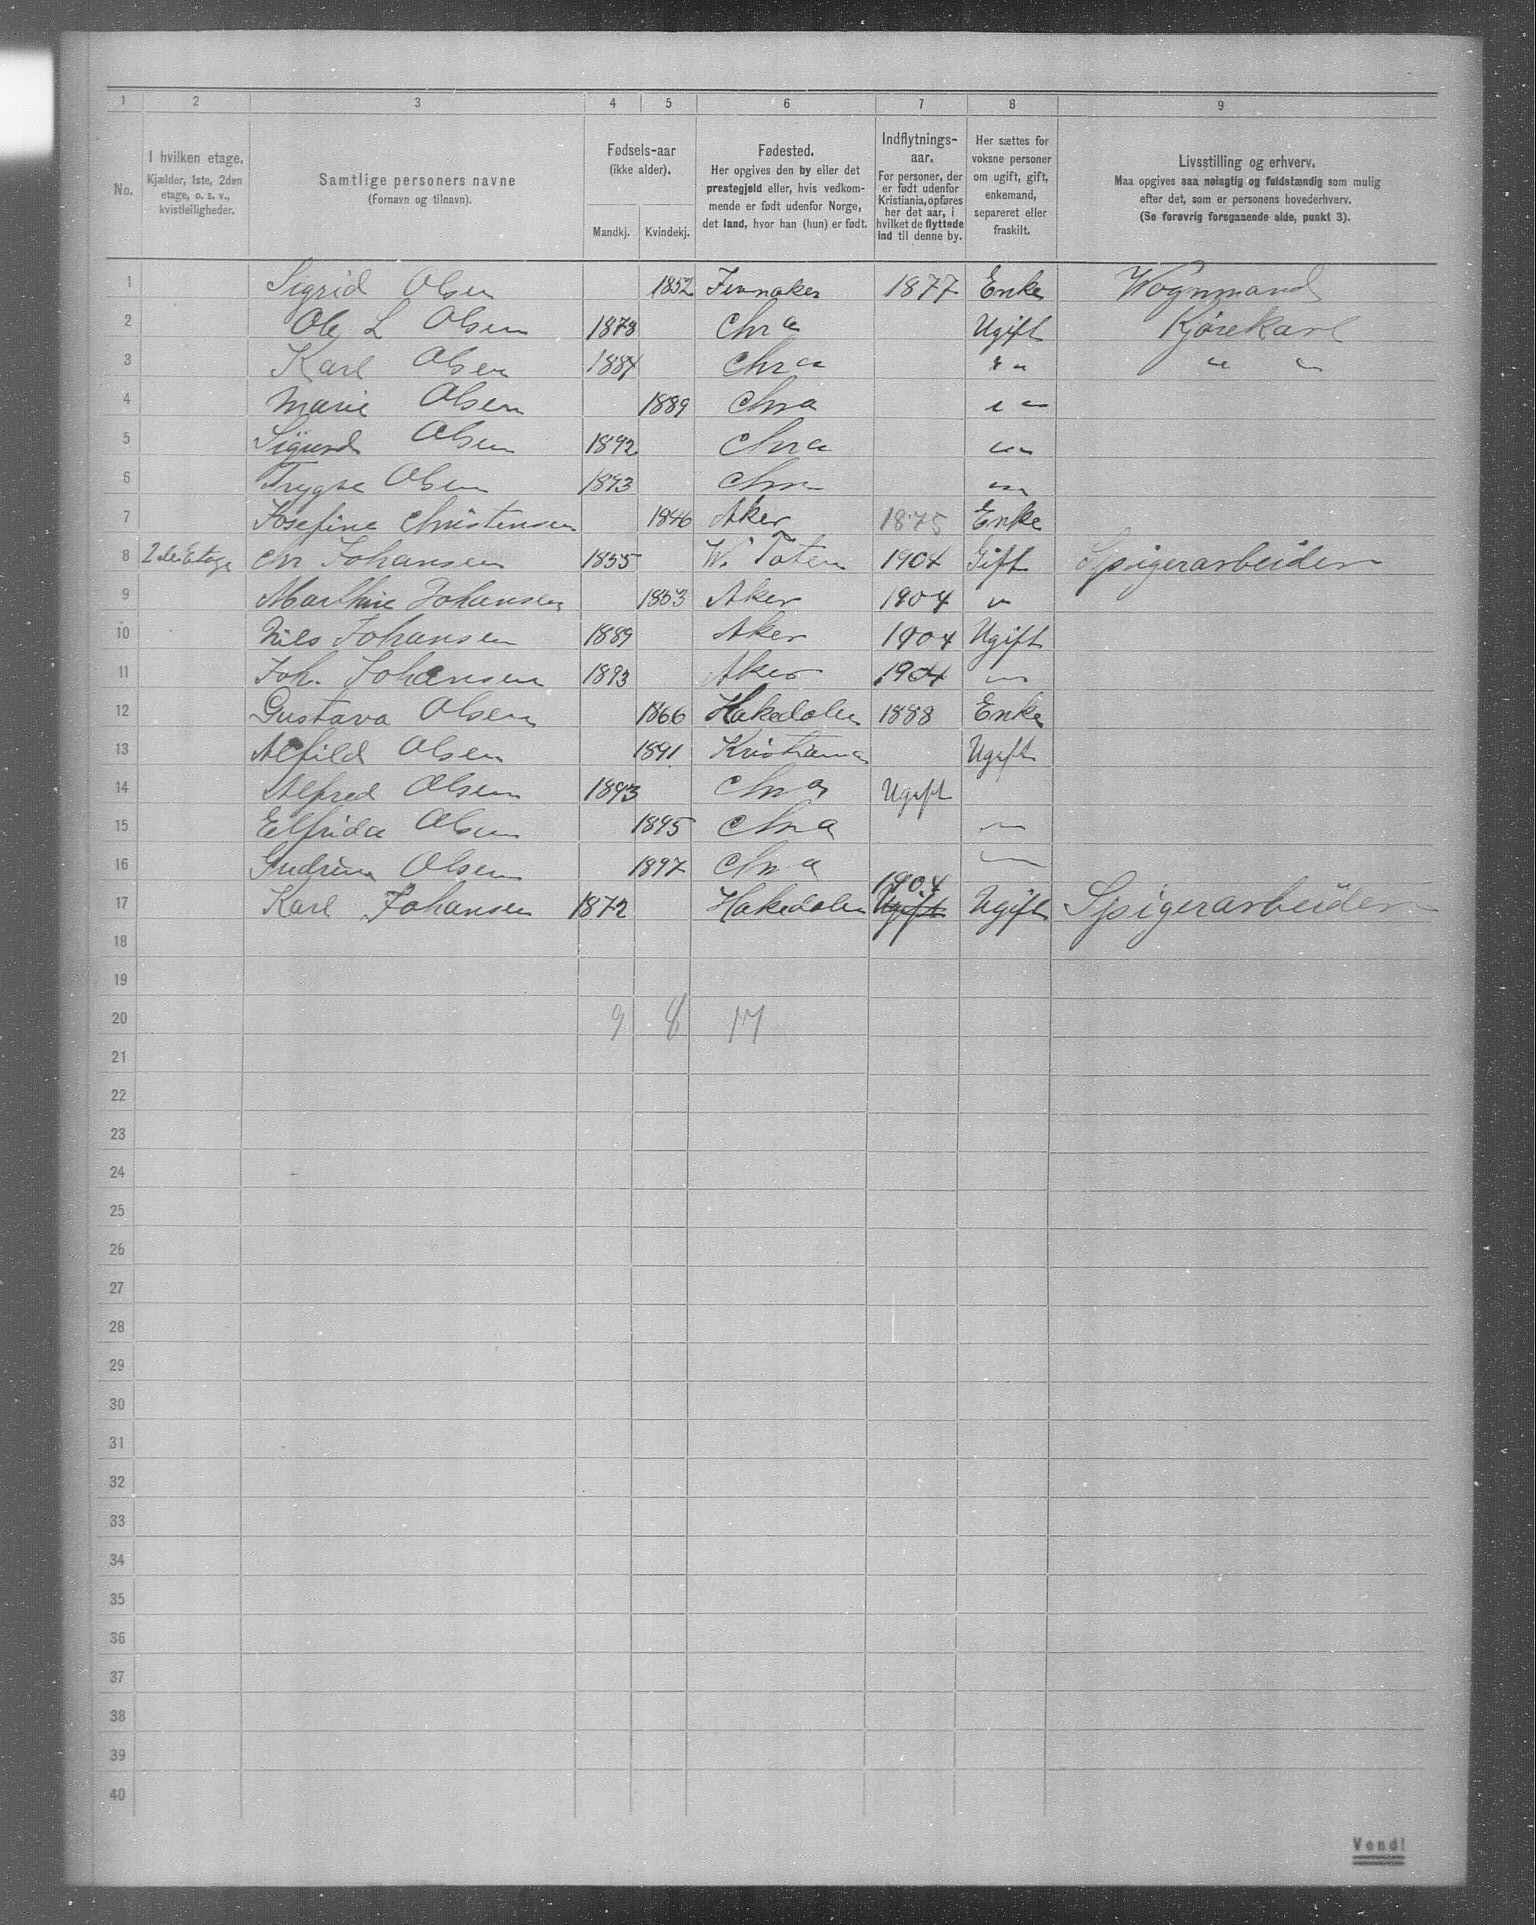 1 2 3 4 5 6 7 8 9
No.
I hvilken etage.
Kjælder, 1ste, 2den
etage, o. s. v.,
kvistleiligheder.
Samtlige personers navne
(Fornavn og tilnavn).
Fødsels-aar
(ikke alder).
Mandkj. Kvindekj.
Fødested.
Her opgives den by eller det
prestegjeld eller, hvis vedkom-
mende er født udenfor Norge,
det land, hvor han (hun) er født.
Indflytnings-
aar.
For personer, der
er født udenfor
Kristiania, opføres
her det aar, i
hvilket de flyttede
ind til denne by.
Her sættes for
voksne personer
om ugift, gift,
enkemand,
separeret eller
fraskilt.
Livsstilling og erhverv.
Maa opgives saa nøiagtig og fuldstændig som mulig
efter det, som er personens hovederhverv.
(Se forøvrig foregaaende side, punkt 3).
1 Sigrid Olsen 1852 Jevnaker 1877 Enke Vognmand
2 Ole L Olsen 1878 Chra Ugift Kjørekarl
3 Karl Olsen 1884 Chra " " " "
4 Marie Olsen 1889 Chra " "
5 Sigurd Olsen 1892 Chra " "
6 Trygve Olsen 1893 Chra " "
7 Josefine Christensen 1846 Aker 1875 Enke
8 2den Etage Chr Johansen 1855 W. Toten 1904 Gift Spigerarbeider
9 Marthine Johansen 1853 Aker 1904 "
10 Nils Johansen 1889 Aker 1904 Ugift
11 Joh. Johansen 1893 Aker 1904 "
12 Gustava Olsen 1866 Hakedalen 1888 Enke
13 Alfild Olsen 1891 Kristiania Ugift
14 Alfred Olsen 1893 Chra Ugift
15 Elfrida Olsen 1895 Chra "
16 Gudrun Olsen 1897 Chra "
17 Karl Johansen 1872 Hakedalen 1904 Ugift Ugift Spigerarbeider
18
19
20 9 8 17
21
22
23
24
25
26
27
28
29
30
31
32
33
34
35
36
37
38
39
40
Vend!